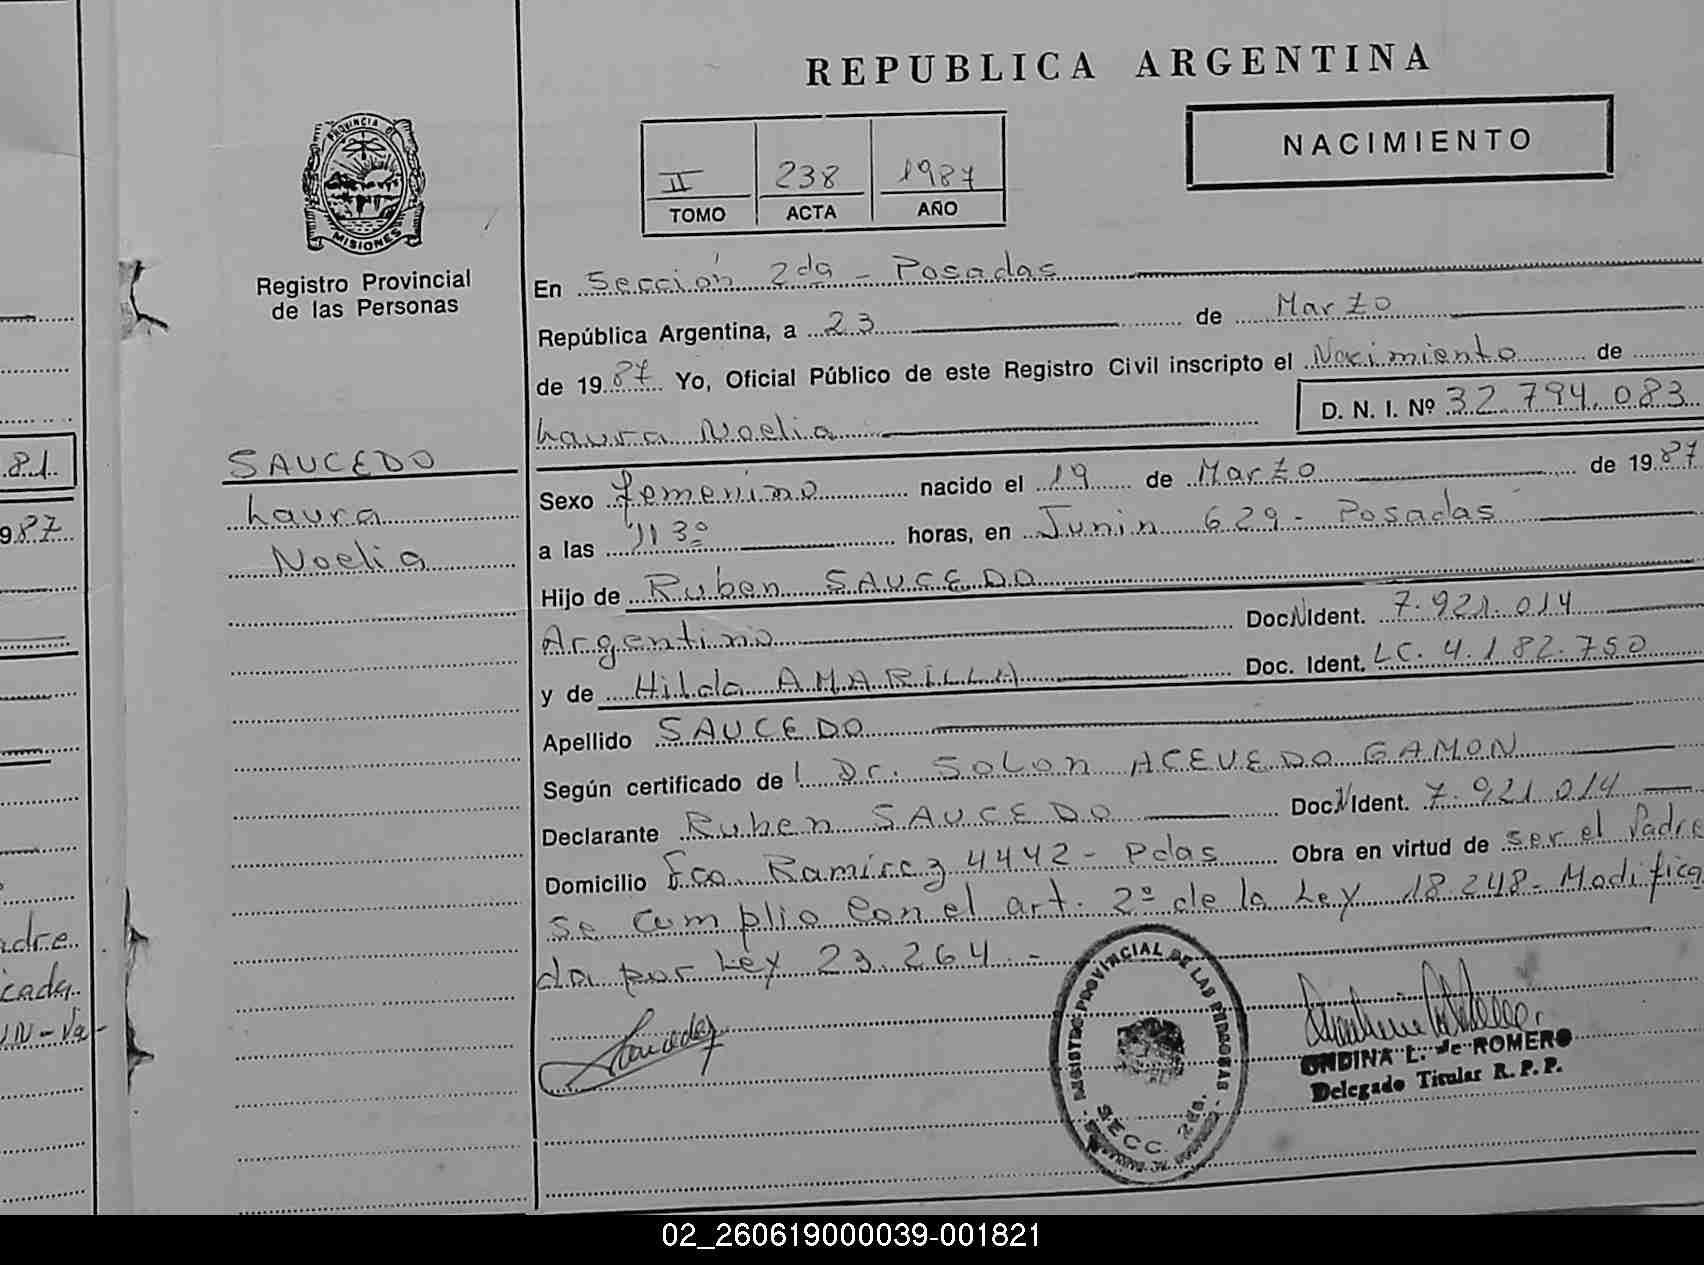 REPUBLICA ARGENTINA
NACIMIENTO
II 238 1987
TOMO ACTA AÑO
PROVINCIA DE
MISIONES
Registro Provincial
de las Personas
En Sección 2da - Posadas
República Argentina, a 23 de Marzo
de 1987 Yo, Oficial Público de este Registro Civil inscripto el Nacimiento de
D. N. I. Nº 32.794.083
Laura Noelia
SAUCEDO
Laura
Noelia
Sexo femenino nacido el 19 de Marzo de 1987
a las 1130 horas, en Junin 629 - Posadas
Hijo de Ruben SAUCEDO
Argentino Doc. Ident. 7.921.014
y de Hilda AMARILLA Doc. Ident. LC. 4.182.750
Apellido SAUCEDO
Según certificado de l Dr. SOLON ACEVEDO GAMON
Declarante Ruben SAUCEDO Doc. Ident. 7.921.014
Domicilio Fco. Ramírez 4442 - Pdas Obra en virtud de ser el Padre
se cumplio con el art. 2º de la Ley 18.248 - Modifica
da por Ley 23.264 -
REGISTRO PROVINCIAL DE LAS PERSONAS
SECC. 2da.
ONDINA L. de ROMERO
Delegado Titular R. P. P.
81
987
adre
cada
02_260619000039-001821